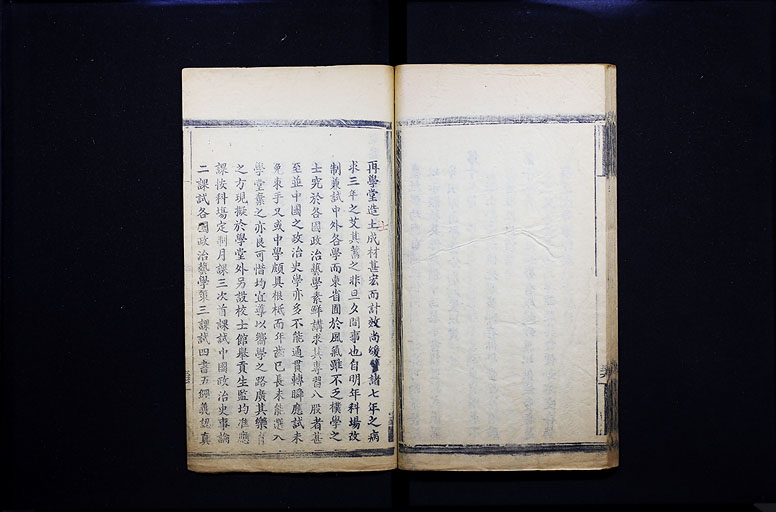 再學堂造士成材甚宏而計效尚緩譬諸七年之病
求三年之艾其蓄之非旦夕間事也自明年科場改
制兼試中外各學而東省囿於風氣雖不乏樸學之
士究於各國政治藝學素鮮講求其專習八股者甚
至並中國之政治史學亦多不能通貫轉瞬應試未
免束手又或中學頗具根柢而年齒已長未能選入
學堂棄之亦良可惜均宜導以嚮學之路廣其樂育
之方現擬於學堂外另設校士館舉貢生監均准應
課按科場定制月課三次首課試中國政治史事論
二課試各國政治藝學策三課試四書五經義認真